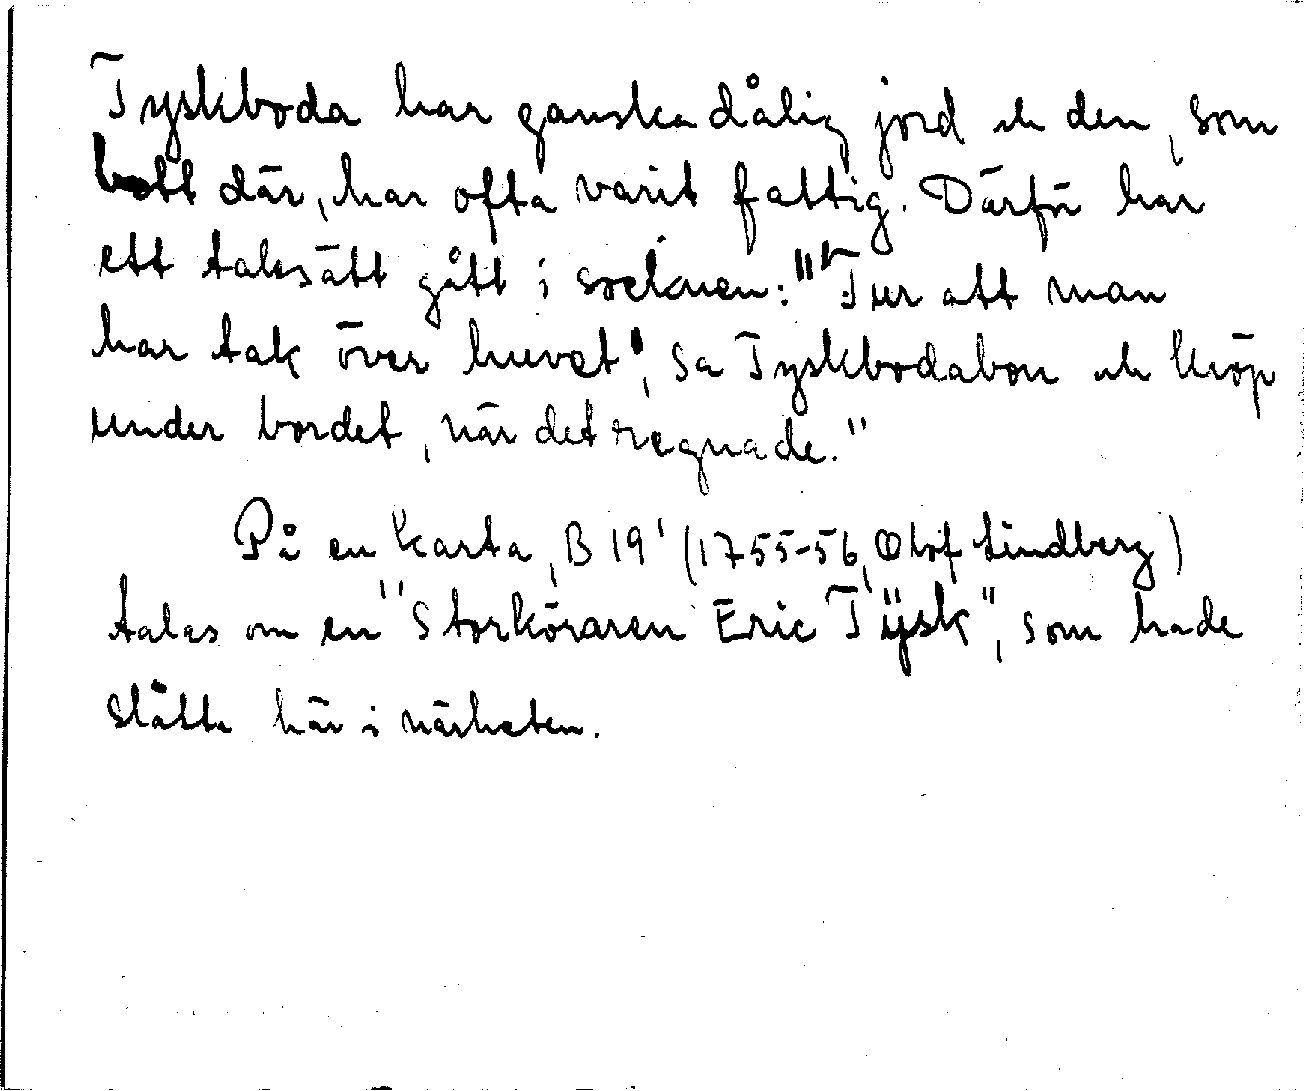 Tyskboda har ganska dålig jord och den, som
bott där, har ofta varit fattig. Därför har
ett talesätt gått i socknen: "'Tur att man
har tak över huvet', sa Tyskbodabon och kröp
under bordet, när det regnade."
På en karta, B 19' (1755-56, Olof Lindberg)
talas om en "Storköraren Eric Tÿsk", som hade
slåtte här i närheten.